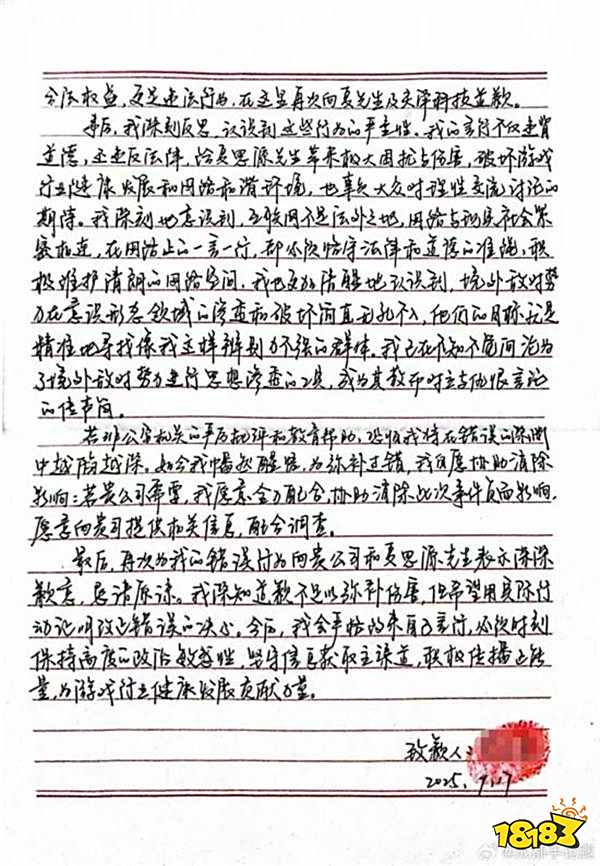 合法权益,更是违法行为,在这里再次向夏先生及灵泽科技道歉。
事后,我深刻反思,认识到这些行为的严重性。我的言行不仅违背
道德,还违反法律,给夏思源先生带来极大困扰与伤害,破坏游戏
行业健康发展和网络和谐环境,也辜负大众对理性交流讨论的
期待。我深刻地意识到,互联网不是法外之地,网络与现实社会紧
密相连,在网络上的一言一行,都必须恪守法律和道德的准绳,积
极维护清朗的网络空间。我也更加清醒地认识到,境外敌对势
力在意识形态领域的渗透和破坏简直无孔不入,他们的目标就是
精准地寻找像我这样辨别力不强的群体。我已在不知不觉间沦为
了境外敌对势力进行思想渗透的工具,成为其散布对立与仇恨言论
的传声筒。
若非公安机关的严厉批评和教育帮助,恐怕我将在错误的深渊
中越陷越深。如今我幡然醒悟,为弥补过错,我自愿协助消除
影响:若贵公司需要,我愿意全力配合,协助消除此次事件负面影响,
愿意向贵司提供相关信息,配合调查。
最后,再次为我的错误行为向贵公司和夏思源先生表示深深
歉意,恳请原谅。我深知道歉不足以弥补伤害,但希望用实际行
动证明改正错误的决心。今后,我会严格约束自己言行,必须时刻
保持高度的政治敏感性,坚守信息获取主渠道,积极传播正能
量,为游戏行业健康发展贡献力量。
致歉人:
2025.
18183